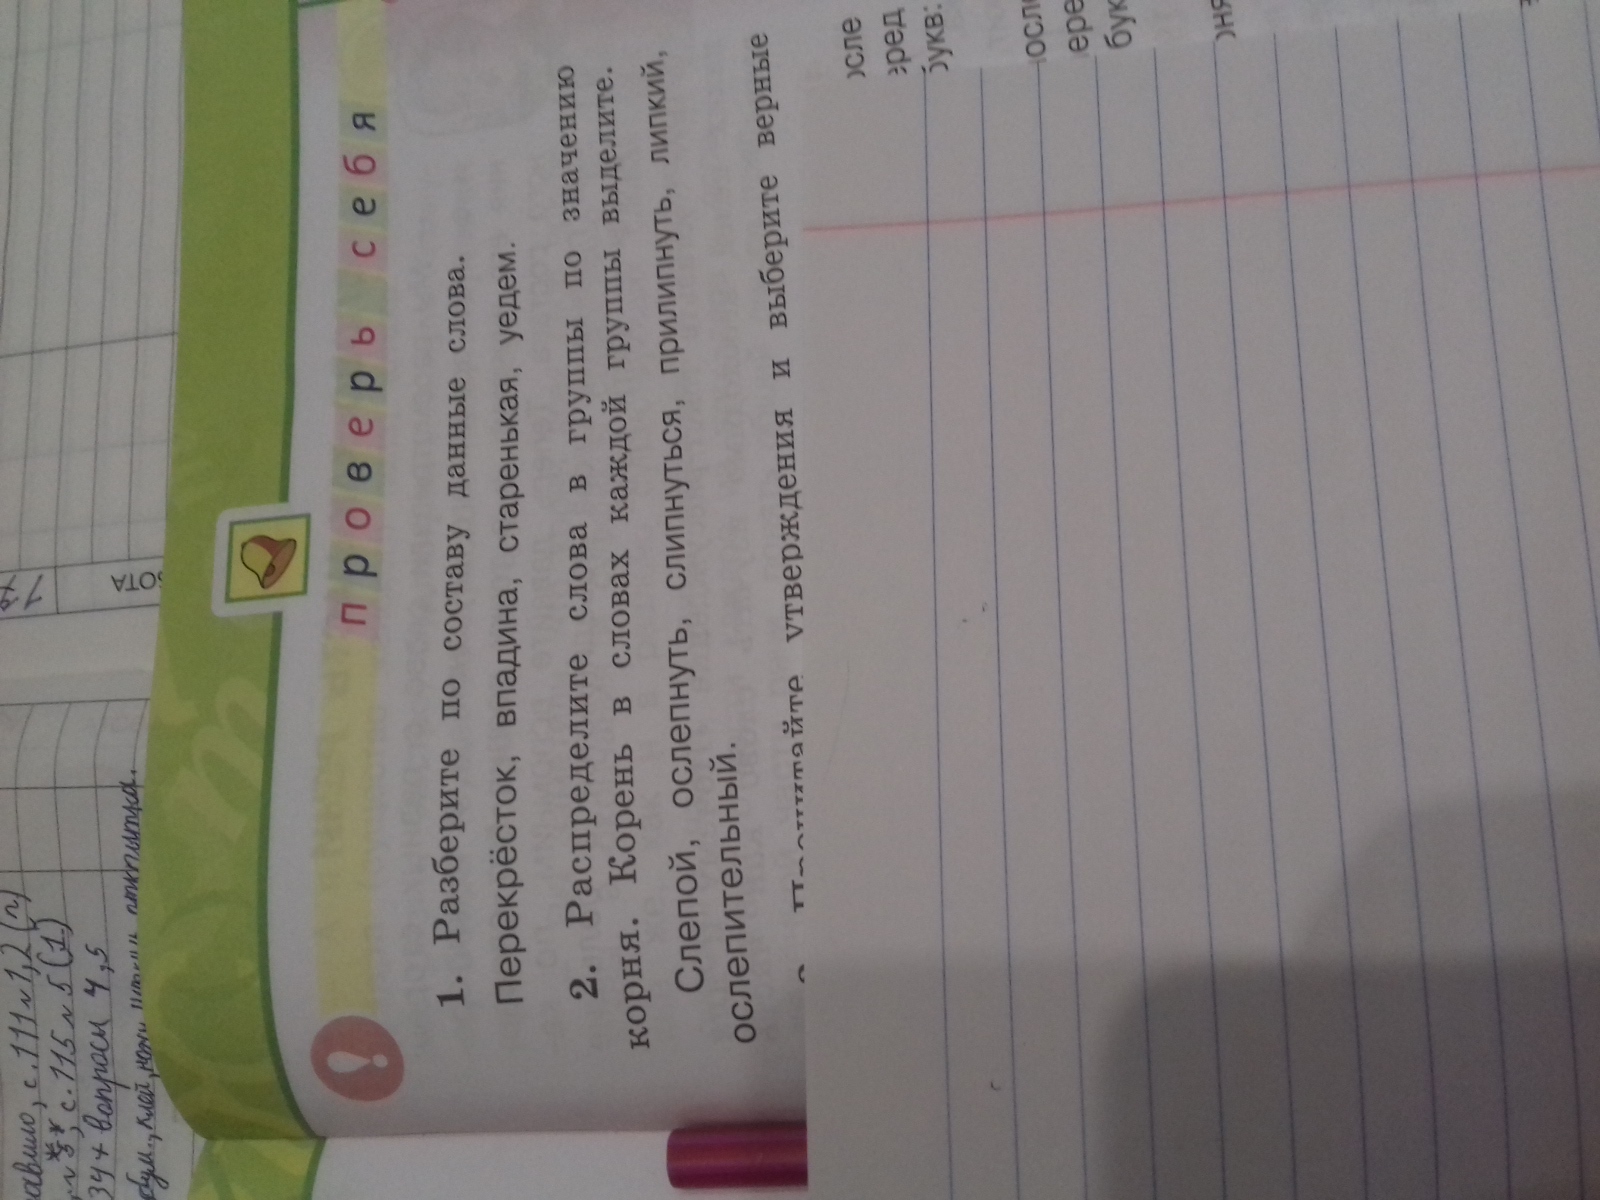 авило, с. 111 п 1, 2 (п)
с. 115 п 5 (1)
34 + вопросы 4, 5
клей, ножн
БОТА
проверь себя
1. Разберите по составу данные слова.
Перекрёсток, впадина, старенькая, уедем.
2. Распределите слова в группы по значению
корня. Корень в словах каждой группы выделите.
Слепой, ослепнуть, слипнуться, прилипнуть, липкий,
ослепительный.
утверждения и выберите верные
осле
еред
букв: